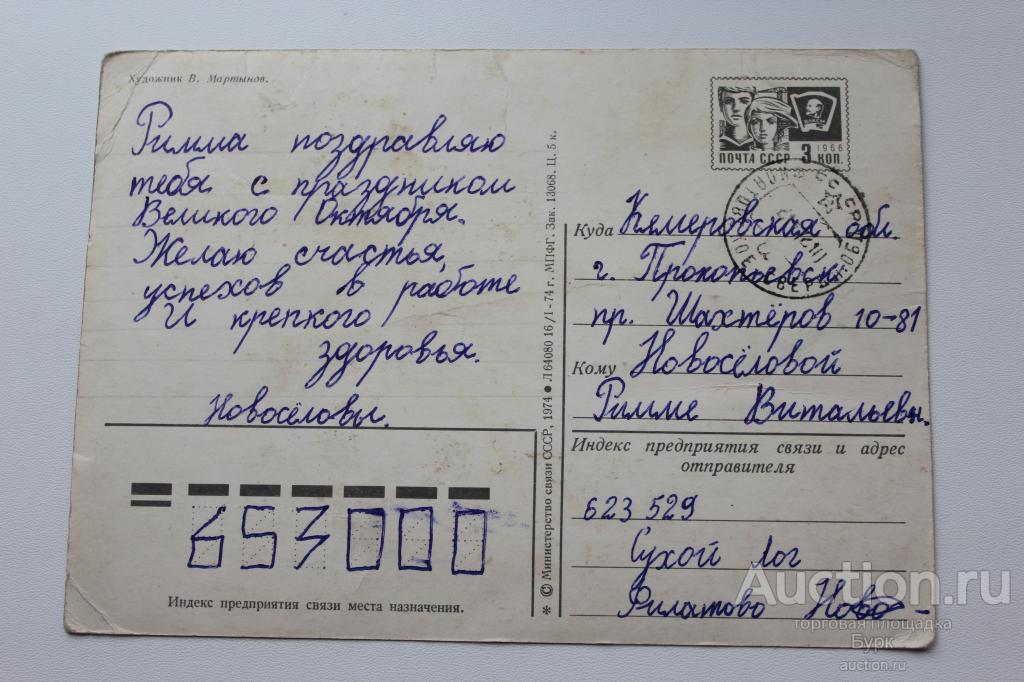 Художник В. Мартынов.
Римма поздравляю
тебя с праздником
Великого Октября.
Желаю счастья,
успехов в работе
И крепкого
здоровья.
Новосёловы.
653000
Индекс предприятия связи места назначения.
* © Министерство связи СССР, 1974 ● Л 64080 16/I-74 г. МПФГ. Зак. 13068. Ц. 5 к.
1966
ПОЧТА СССР 3 КОП.
Куда Кемеровская обл.
г. Прокопьевск
пр. Шахтёров 10-81
Кому Новосёловой
Римме Витальевн.
Индекс предприятия связи и адрес
отправителя
623529
Сухой Лог
Филатово Ново-
Auction.ru
торговая площадка
Бурк
auction.ru